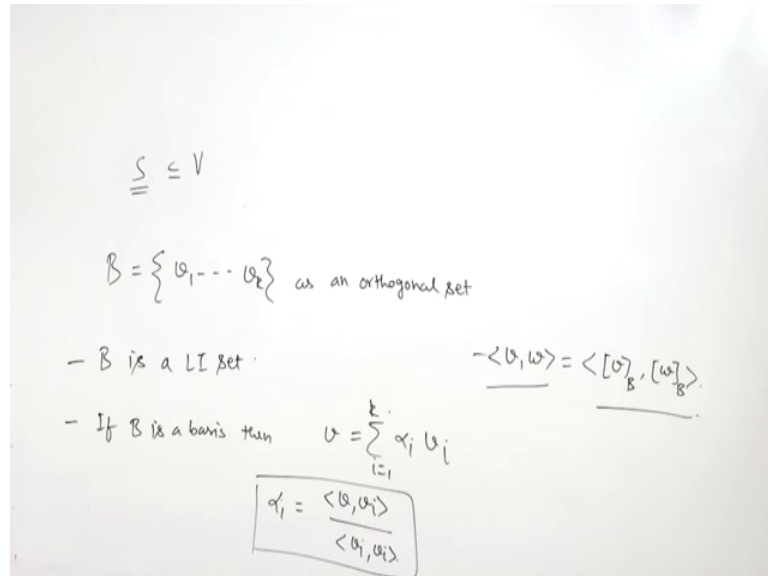 S ⊆ V
B = { v₁, --- v_k } as an orthogonal set
- B is a LI set.
- <v, w> = < [v]_B , [w]_B >.
- If B is a basis then v = \sum_{i=1}^{k} α_i v_i
α_i = <v, v_i> / <v_i, v_i>